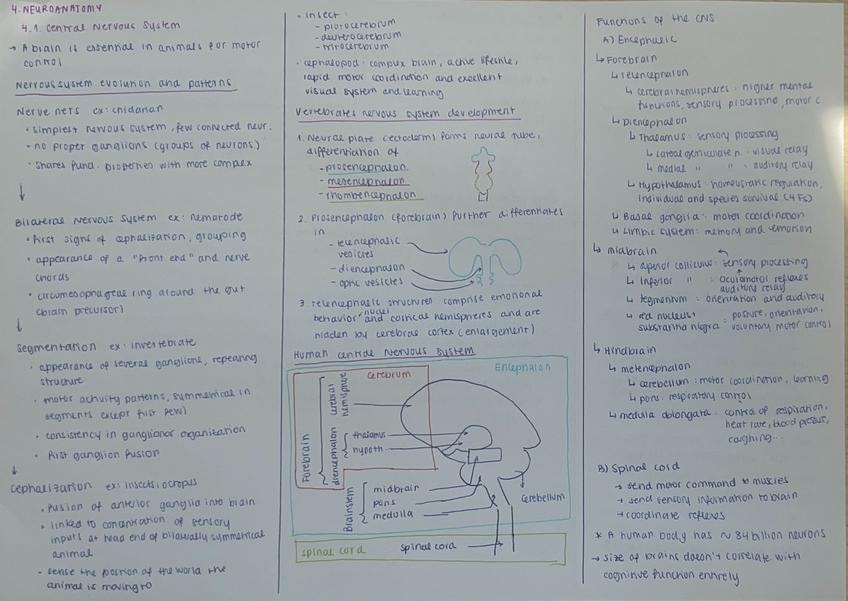 4. NEUROANATOMY
4.1. Central Nervous System
→ A brain is essential in animals for motor
control
Nervous system evolution and patterns
Nerve nets ex: cnidarian
• simplest nervous system, few connected neur.
• no proper ganglions (groups of neurons)
• Shares fund. properties with more complex
Bilateral Nervous System ex: nematode
• First signs of cephalization, grouping
• appearance of a "front end" and nerve
chords
• circumesophageal ring around the gut
(brain precursor)
Segmentation ex: invertebrate
• appearance of several ganglions, repeating
structure
• motor activity patterns, symmetrical in
segments except first few)
• consistency in ganglionar organization
• First ganglion fusion
Cephalization ex: insects/octopus
• Fusion of anterior ganglia into brain
• linked to concentration of sensory
inputs at head end of bilaterally symmetrical
animal
• sense the position of the world the
animal is moving to
- insect:
- protocerebrum
- deuterocerebrum
- tritocerebrum
• cephalopod: complex brain, active lifestyle,
rapid motor coordination and excellent
visual system and learning
Vertebrates nervous system development
1. Neural plate (ectoderm) forms neural tube,
differentiation of
- prosencephalon
- mesencephalon
- rhombencephalon
2. Prosencephalon (forebrain) further differentiates
in
- telencephalic
vesicles
- diencephalon
- optic vesicles
3 Telencephalic structures comprise emotional
behavior nuclei and cortical hemispheres and are
hidden by cerebral cortex (enlargement)
Human central nervous system
Encephalon
Cerebrum
Forebrain
cerebral
hemisphere
diencephalon
thalamus
hypoth.
Brainstem
midbrain
pons
medulla
Cerebellum
spinal cord
spinal cord
Functions of the CNS
A) Encephalic
↳ Forebrain
↳ Telencephalon
↳ cerebral hemispheres: higher mental
functions, sensory processing, motor c.
↳ Diencephalon
↳ Thalamus: sensory processing
↳ Lateral geniculate n.: visual relay
↳ medial " " auditory relay
↳ Hypothalamus: homeostatic regulation,
individual and species survival (4 Fs)
↳ Basal ganglia: motor coordination
↳ Limbic system: memory and emotion
↳ midbrain
↳ superior colliculus: sensory processing
↳ Inferior " : oculomotor reflexes
auditory relay
↳ tegmentum: orientation and auditory
↳ red nucleus: posture, orientation,
substantia nigra: voluntary motor control
↳ Hindbrain
↳ metencephalon
↳ cerebellum: motor coordination, learning
↳ pons: respiratory control
↳ medulla oblongata: control of respiration,
heart rate, blood pressure,
coughing...
B) Spinal cord
→ send motor command to muscles
→ send sensory information to brain
→ coordinate reflexes
* A human body has ~ 84 billion neurons
→ size of brains doesn't correlate with
cognitive function entirely